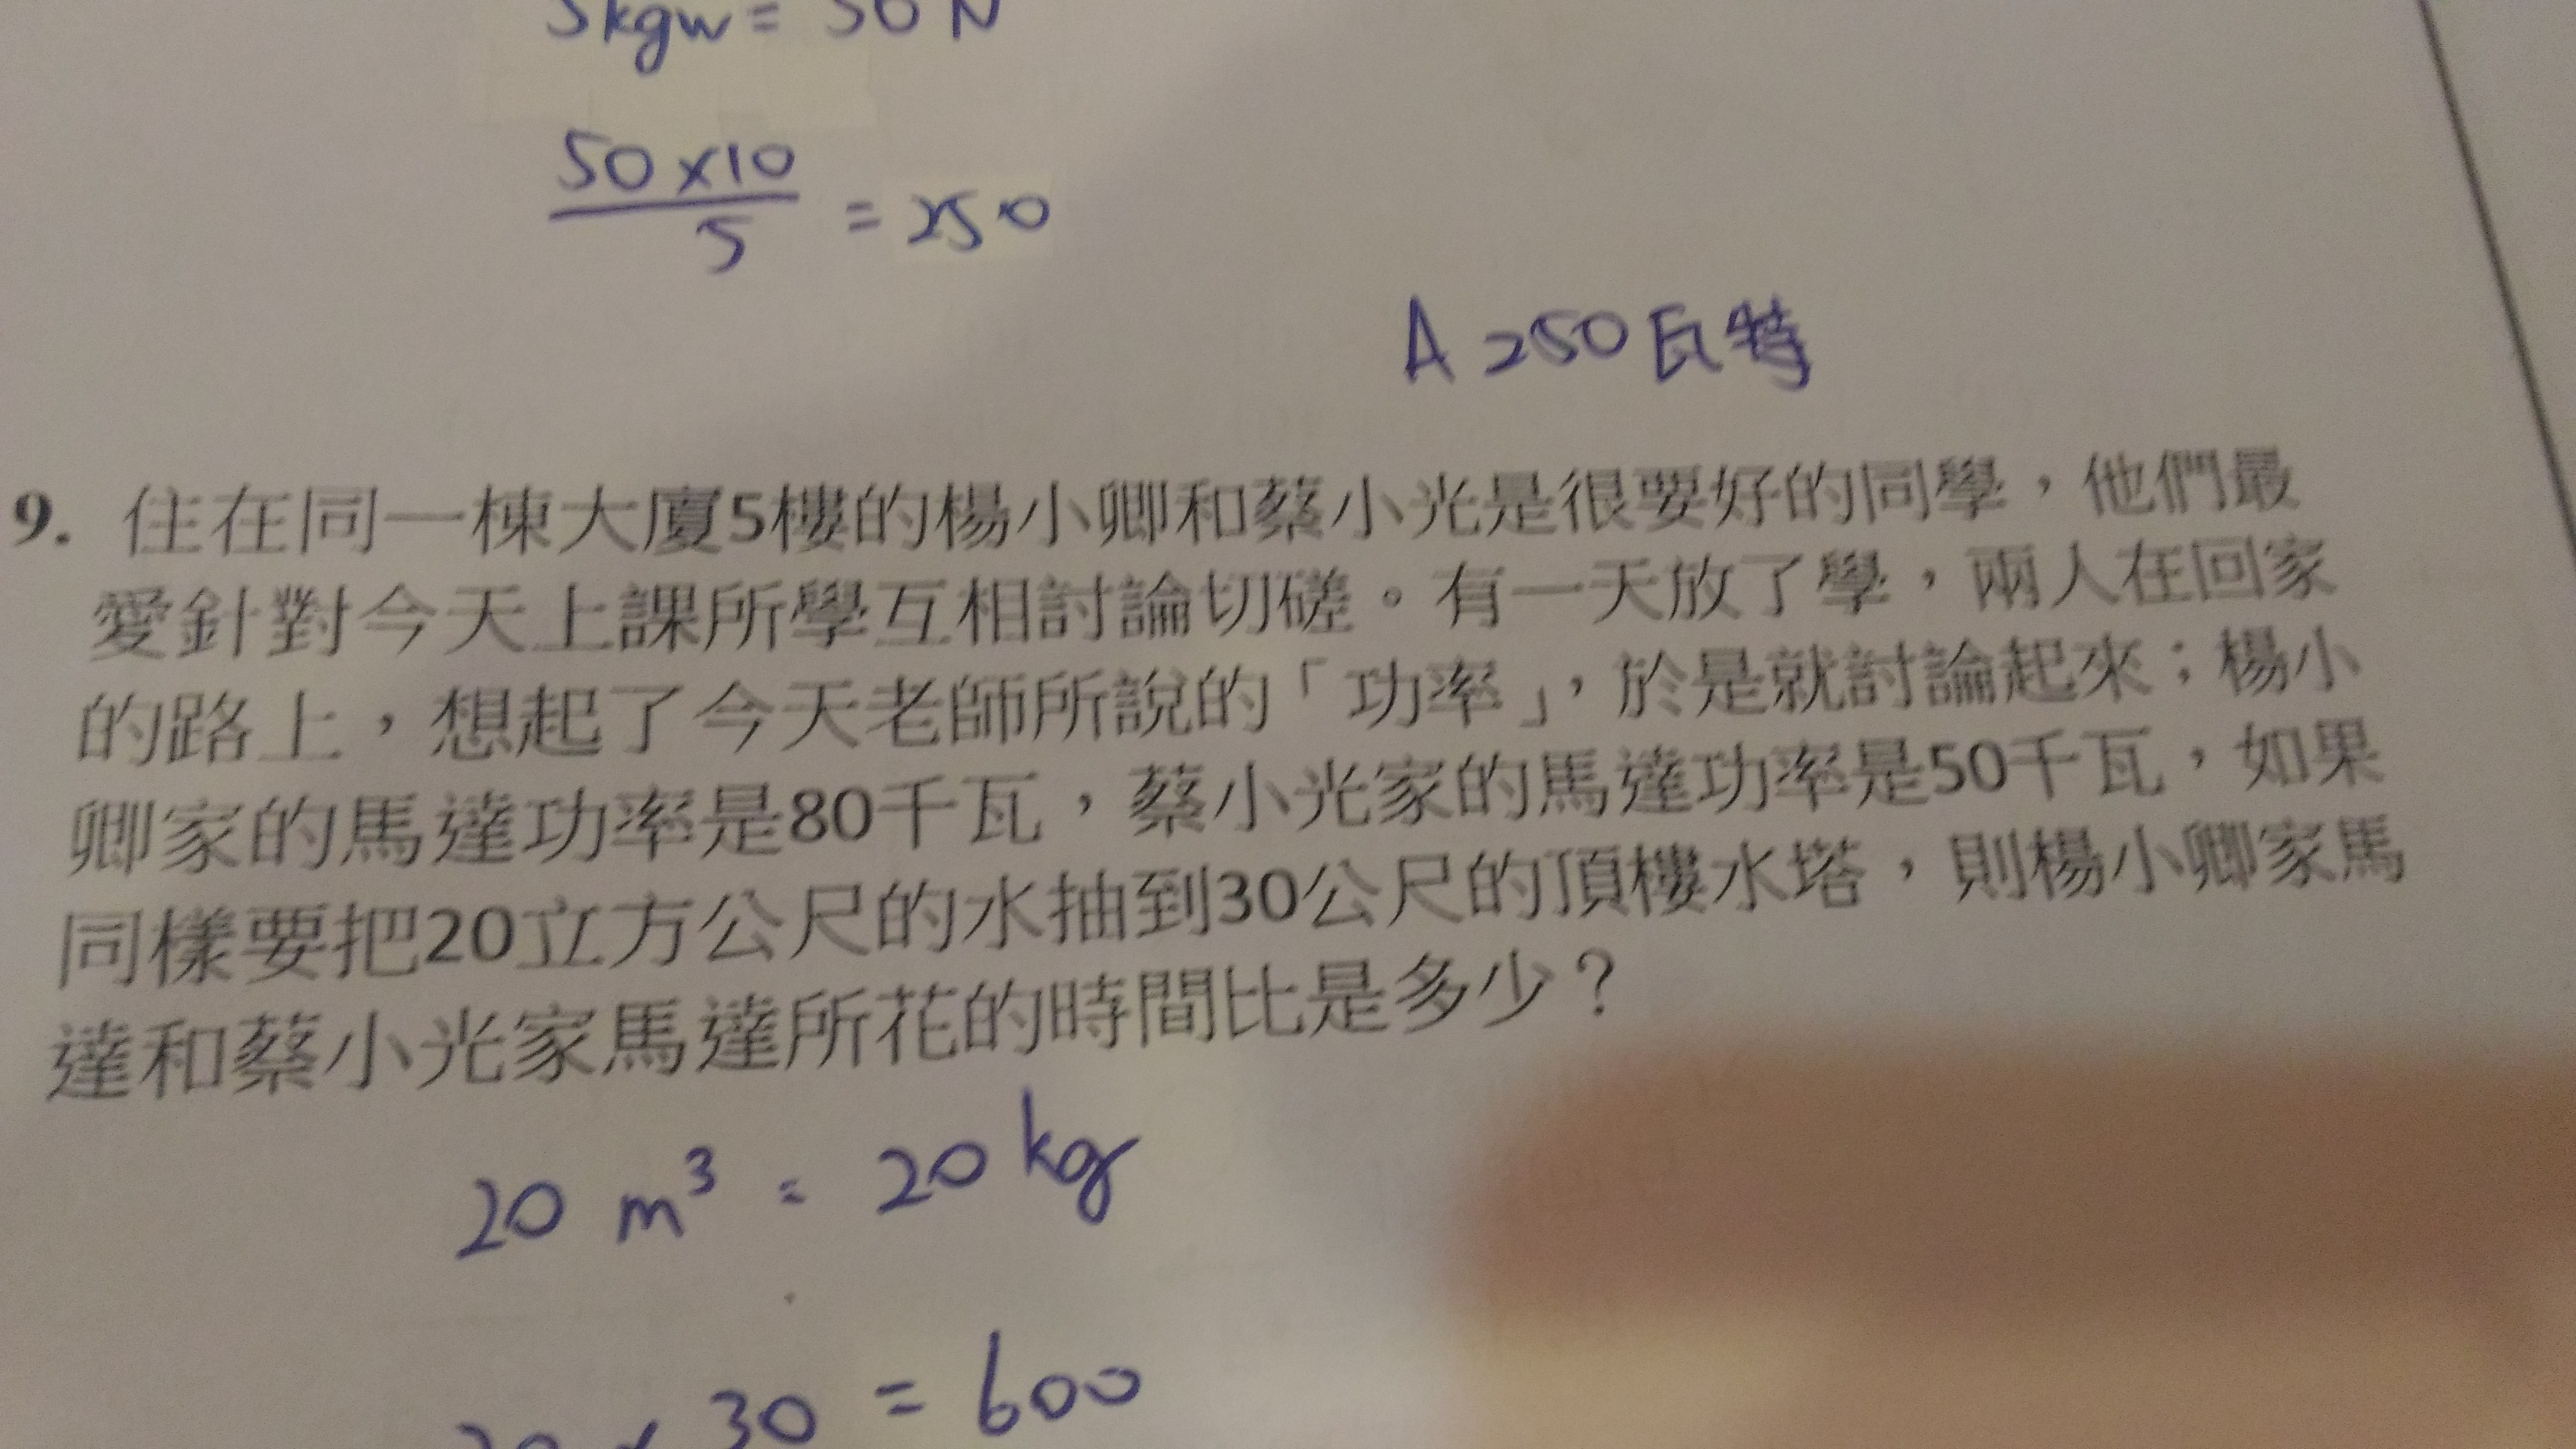 5kgw = 50 N
50 x 10
5
= 250
A 250 瓦特
9. 住在同一棟大廈5樓的楊小卿和蔡小光是很要好的同學，他們最
愛針對今天上課所學互相討論切磋。有一天放了學，兩人在回家
的路上，想起了今天老師所說的「功率」，於是就討論起來；楊小
卿家的馬達功率是80千瓦，蔡小光家的馬達功率是50千瓦，如果
同樣要把20立方公尺的水抽到30公尺的頂樓水塔，則楊小卿家馬
達和蔡小光家馬達所花的時間比是多少？
20 m³ = 20 kg
20 x 30 = 600